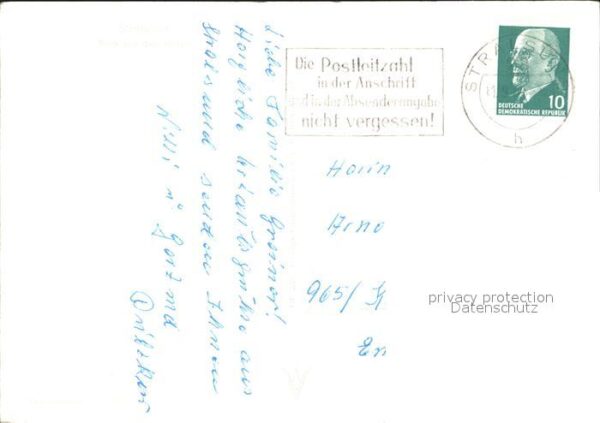 Die Postleitzahl
in der Anschrift
und in der Absenderangabe
nicht vergessen!
STRALSUND
h
10
DEUTSCHE
DEMOKRATISCHE REPUBLIK
Liebe Familie Greiner!
Herzliche Urlaubsgrüße aus
Stralsund senden Ihnen
Willi u
Herrn
Arno
965/
privacy protection
Datenschutz